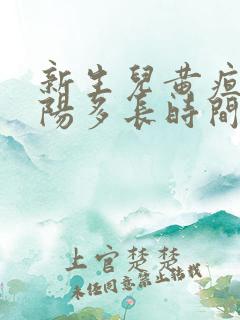 新生兒黄疸
陽多长時間
上官楚楚
未经同意禁止转载